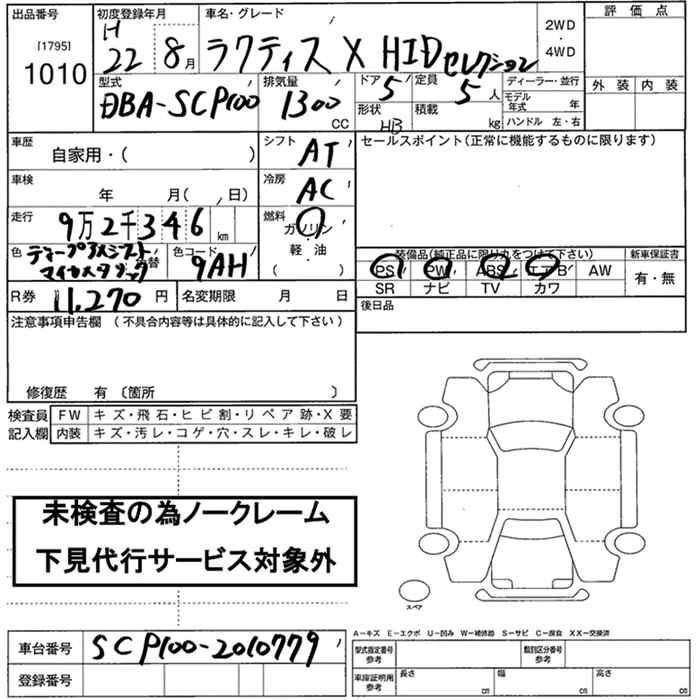 出品番号 初度登録年月 車名・グレード 2WD・4WD 評価点
[1795]
1010 H 22 8月 ラクティス X HIDセレクション 外装 内装
型式 排気量 ドア 定員 ディーラー・並行
DBA-SCP100 1300 CC 5 5人 モデル年式 年
形状 HB 積載 kg ハンドル 左・右
車歴 シフト セールスポイント(正常に機能するものに限ります)
自家用・( ) AT
車検 年 月( 、日) 冷房 AC
走行 9万2千346km 燃料 ガソリン
軽・油
( )
色 替 色コード 9AH
装備品(純正品に限り丸をつけて下さい) 新車保証書
PS PW ABS エアB AW 有・無
SR ナビ TV カワ
R券 11,270円 名変期限 月 日 後日品
注意事項申告欄 (不具合内容等は具体的に記入して下さい)
修復歴 有 〔箇所 〕
検査員 FW キズ・飛石・ヒビ割・リペア跡・X要
記入欄 内装 キズ・汚レ・コゲ・穴・スレ・キレ・破レ
未検査の為ノークレーム
下見代行サービス対象外
スペア
A-キズ E-エクボ U-凹み W-補修跡 S-サビ C-腐食 XX-交換済
車台番号 SCP100-2010779
型式指定番号 参考 類別区分番号 参考
登録番号
車庫証明用 参考 長さ cm 幅 cm 高さ cm